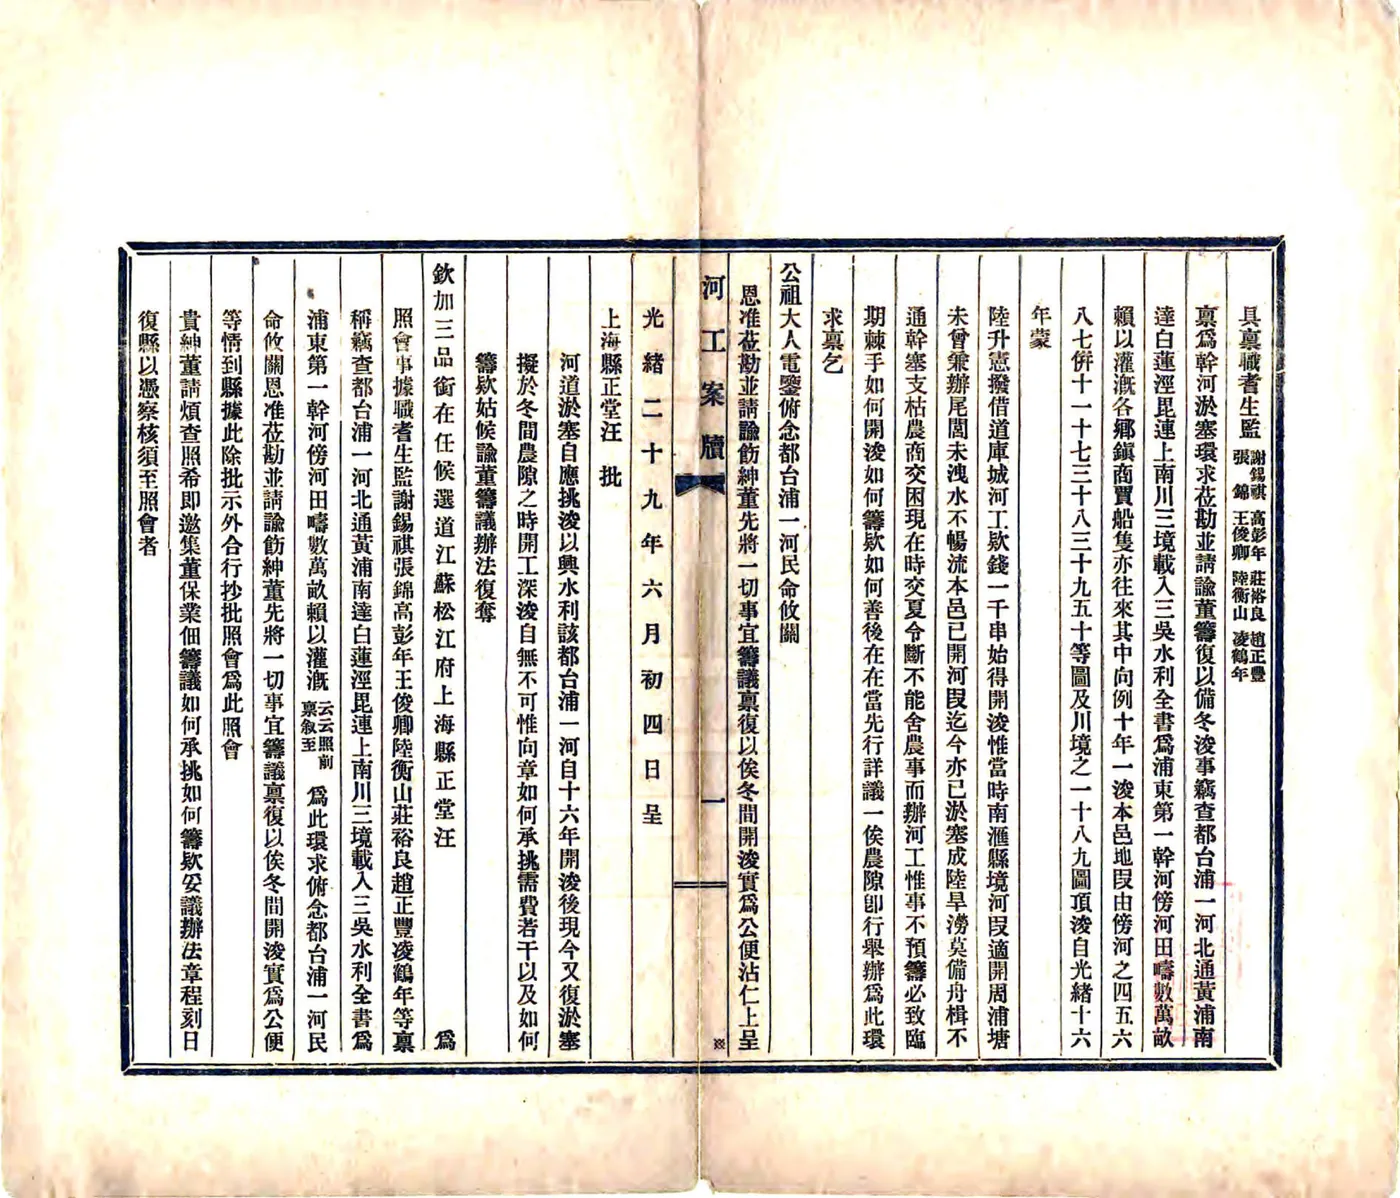 具禀職耆生監 謝錫祺 高彭年 莊裕良 趙正豐
張錦 王俊卿 陸衡山 凌鶴年
禀爲幹河淤塞環求莅勘並請諭董籌復以備冬浚事竊查都台浦一河北通黃浦南
達白蓮涇毘連上南川三境載入三吳水利全書爲浦東第一幹河傍河田疇數萬畝
賴以灌漑各鄉鎮商賈船隻亦往來其中向例十年一浚本邑地段由傍河之四五六
八七併十一十七三十八三十九五十等圖及川境之一十八九圖頂浚自光緒十六
年蒙
陸升憲撥借道庫城河工欵錢一千串始得開浚惟當時南滙縣境河段適開周浦塘
未曾兼辦尾閭未洩水不暢流本邑已開河段迄今亦已淤塞成陸旱澇莫備舟楫不
通幹塞支枯農商交困現在時交夏令斷不能舍農事而辦河工惟事不預籌必致臨
期棘手如何開浚如何籌欵如何善後在在當先行詳議一俟農隙卽行舉辦爲此環
求禀乞
公祖大人電鑒俯念都台浦一河民命攸關
恩准莅勘並請諭飭紳董先將一切事宜籌議禀復以俟冬間開浚實爲公便沾仁上呈
河工案牘
一
光緒二十九年六月初四日呈
上海縣正堂汪 批
河道淤塞自應挑浚以興水利該都台浦一河自十六年開浚後現今又復淤塞
擬於冬間農隙之時開工深浚自無不可惟向章如何承挑需費若干以及如何
籌欵姑候諭董籌議辦法復奪
欽加三品銜在任候選道江蘇松江府上海縣正堂汪 爲
照會事據職耆生監謝錫祺張錦高彭年王俊卿陸衡山莊裕良趙正豐凌鶴年等禀
稱竊查都台浦一河北通黃浦南達白蓮涇毘連上南川三境載入三吳水利全書爲
浦東第一幹河傍河田疇數萬畝賴以灌漑 云云照前禀叙至 爲此環求俯念都台浦一河民
命攸關恩准莅勘並請諭飭紳董先將一切事宜籌議禀復以俟冬間開浚實爲公便
等情到縣據此除批示外合行抄批照會爲此照會
貴紳董請煩查照希即邀集董保業佃籌議如何承挑如何籌欵妥議辦法章程刻日
復縣以憑察核須至照會者